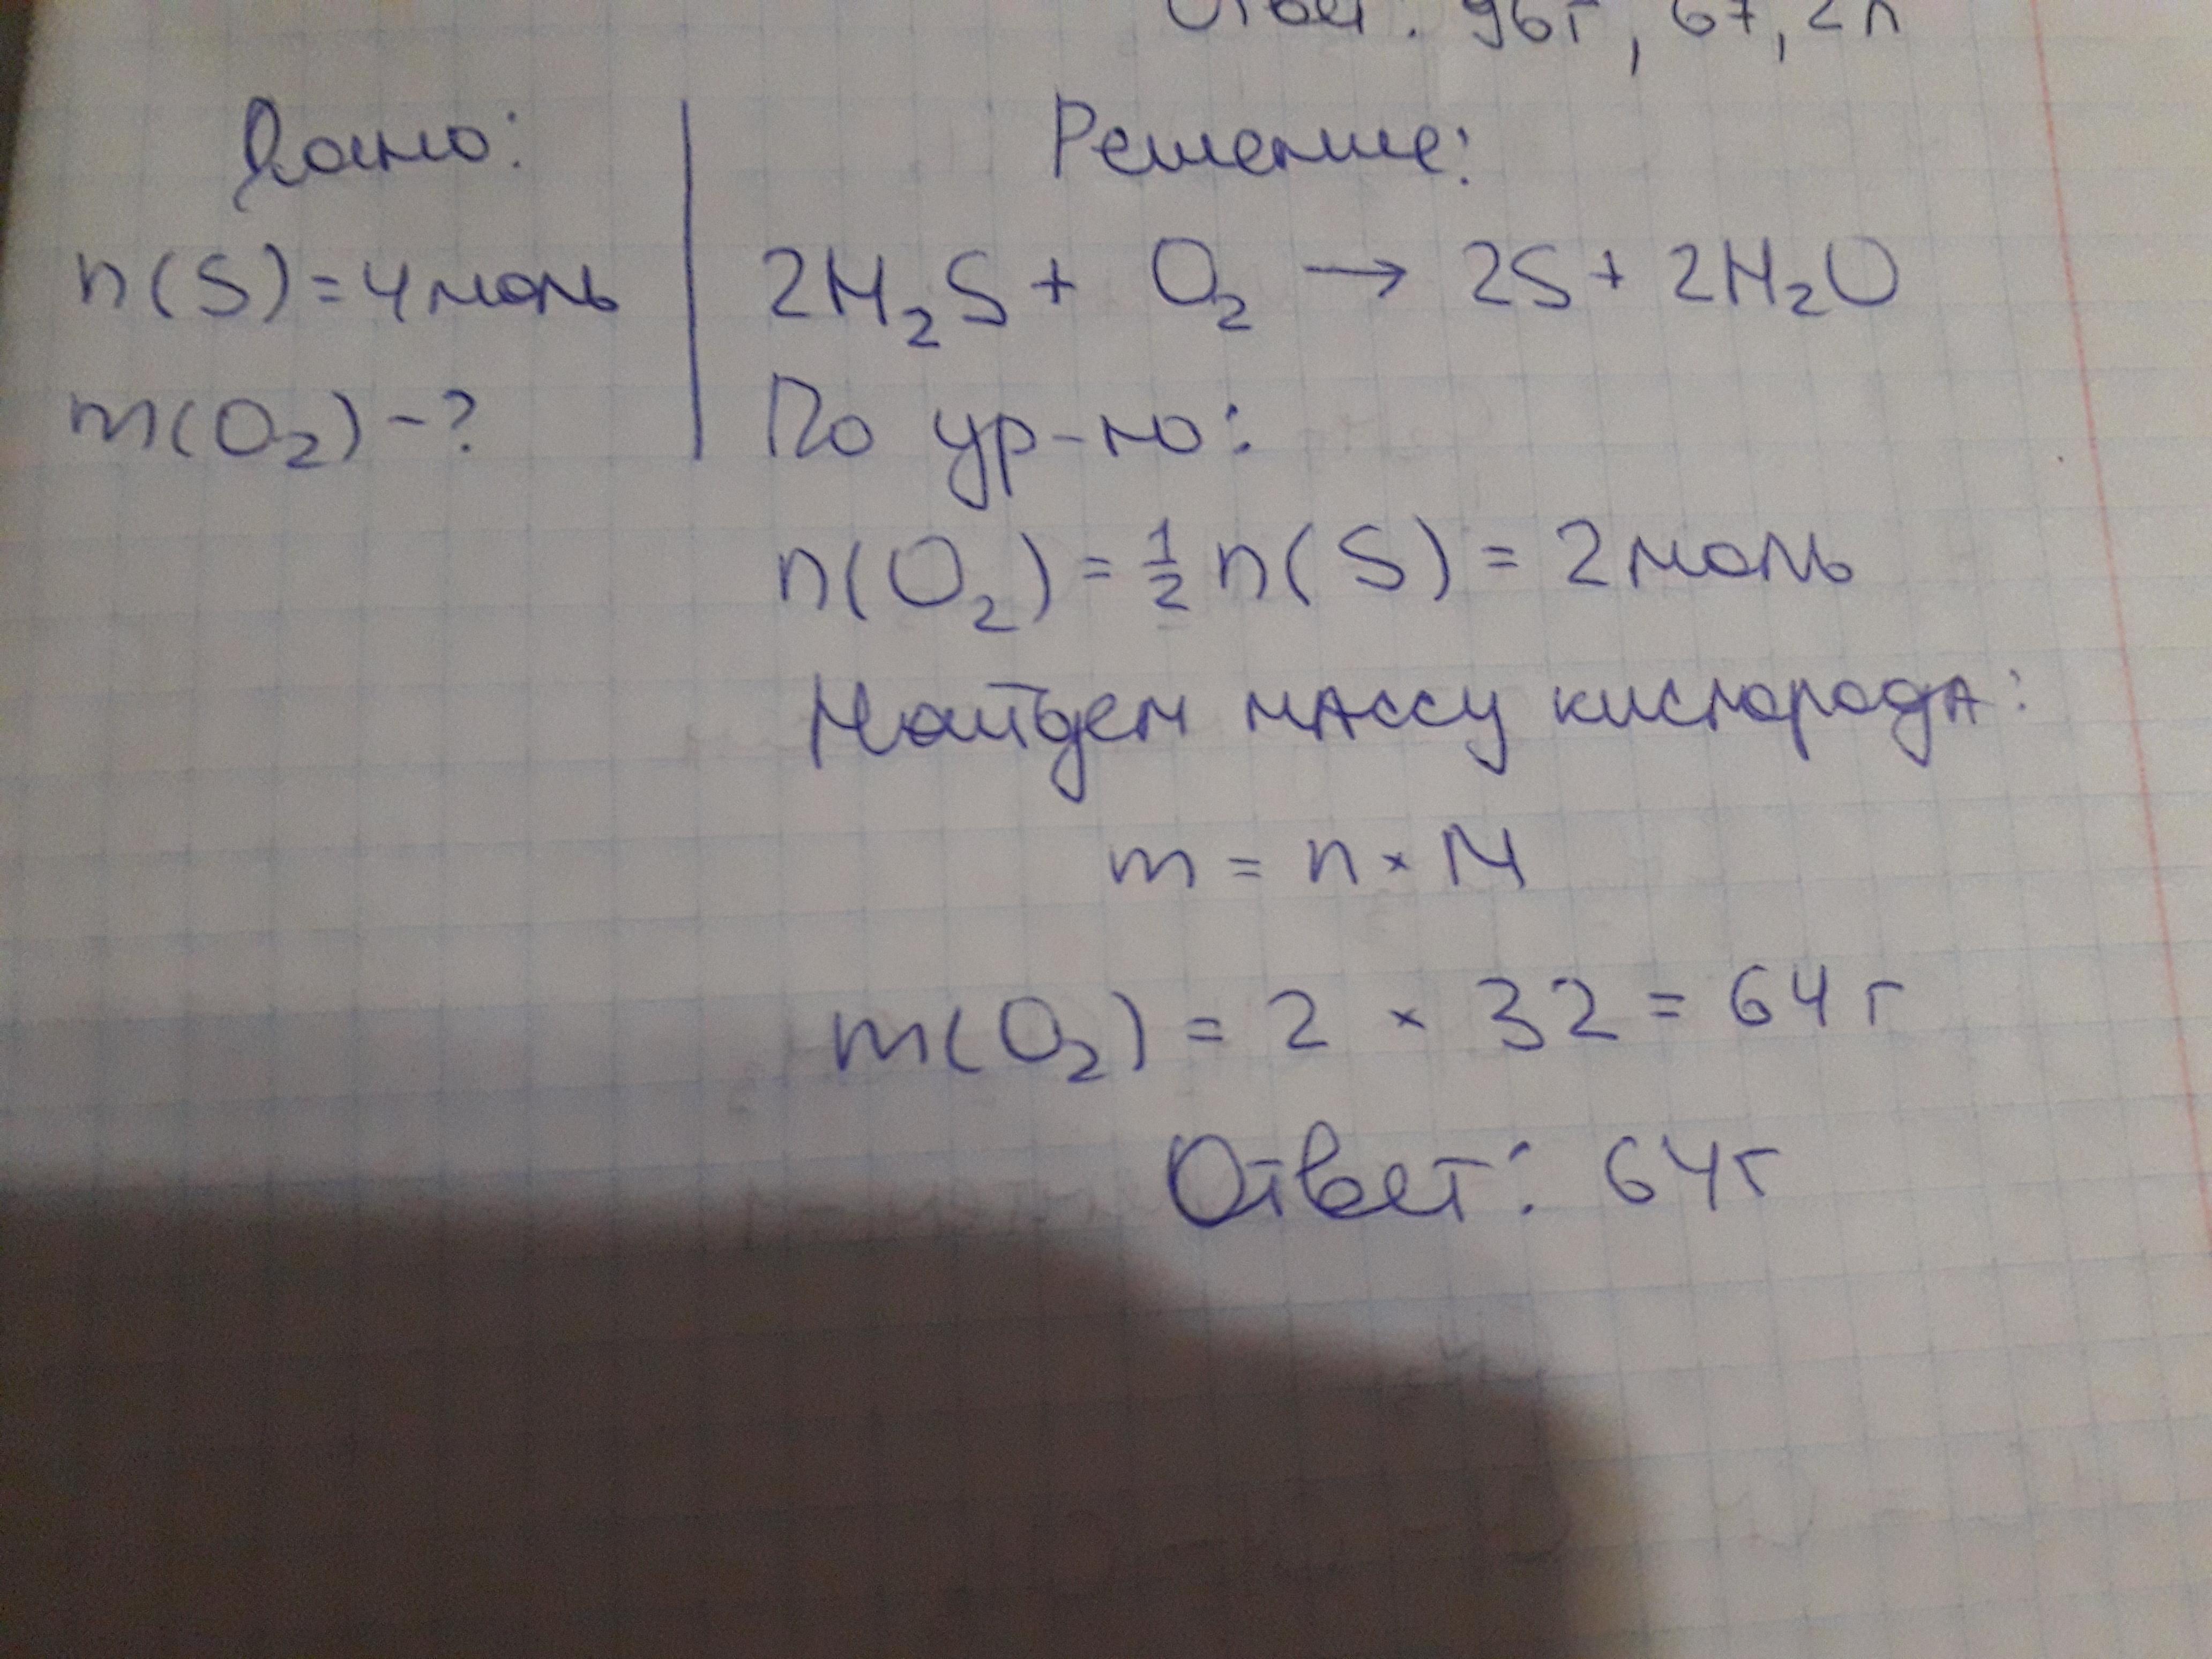 Ответ: 96г, 67,2л
Дано:
n(S)=4моль
m(O₂)-?
Решение:
2H₂S + O₂ → 2S + 2H₂O
По ур-ю:
n(O₂) = 1/2 n(S) = 2моль
Найдем массу кислорода:
m = n × M
m(O₂) = 2 × 32 = 64 г
Ответ: 64г